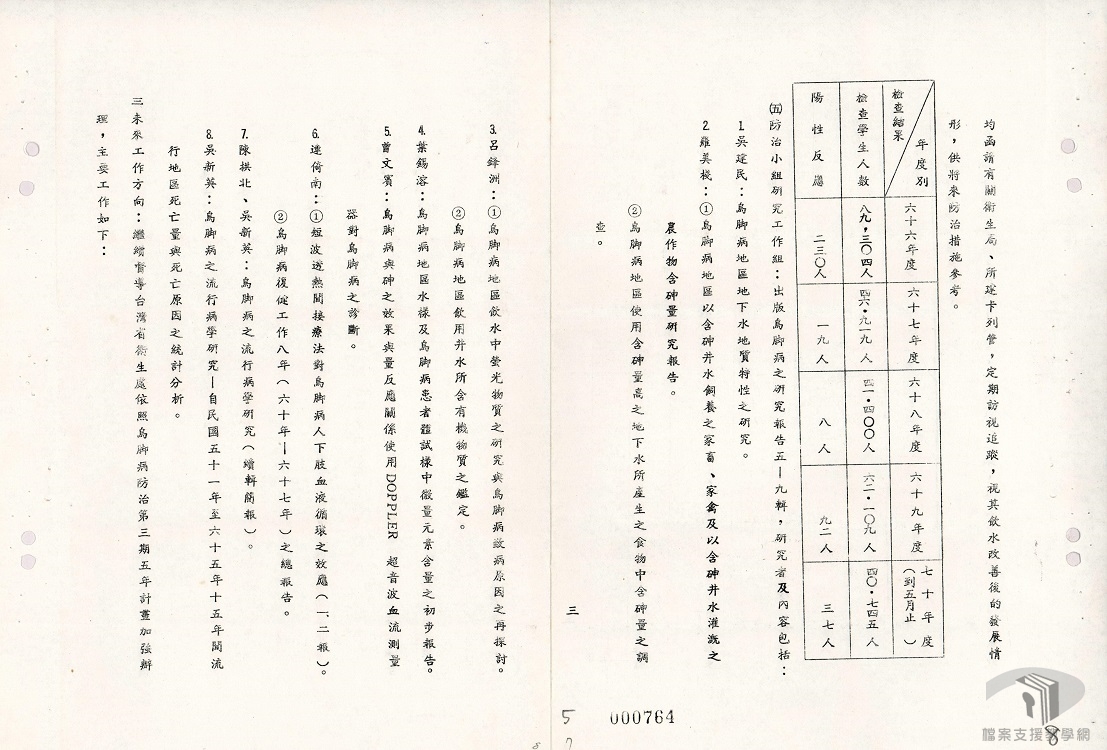 均函請有關衛生局、所逐卡列管，定期訪視追蹤，視其飲水改善後的發展情
形，供將來防治措施參考。
年度別
檢查結果
檢查學生人數
陽性反應
六十六年度
八九，三〇四人
二三〇人
六十七年度
四六・九一九人
一九人
六十八年度
四一・四〇〇人
八人
六十九年度
六二・一〇九人
九二人
七十年度
（到五月止）
四〇・七四五人
三七人
㈤防治小組研究工作組：出版烏脚病之研究報告五—九輯，研究者及內容包括：
1.吳建民：烏脚病地區地下水地質特性之研究。
2.羅美棧：①烏脚病地區以含砷井水飼養之家畜、家禽及以含砷井水灌漑之
農作物含砷量研究報告。
②烏脚病地區使用含砷量高之地下水所產生之食物中含砷量之調
查。
三
3.呂鋒洲：①烏脚病地區飲水中螢光物質之研究與烏脚病致病原因之再探討。
②烏脚病地區飲用井水所含有機物質之鑑定。
4.葉錫溶：烏脚病地區水樣及烏脚病患者體試樣中微量元素含量之初步報告。
5.曾文賓：烏脚病與砷之效果與量反應關係使用DOPPLER 超音波血流測量
器對烏脚病之診斷。
6.連倚南：①短波透熱間接療法對烏脚病人下肢血液循環之效應（一、二報）。
②烏脚病復健工作八年（六十年—六十七年）之總報告。
7.陳拱北、吳新英：烏脚病之流行病學研究（續輯簡報）。
8.吳新英：烏脚病之流行病學研究—自民國五十一年至六十五年十五年間流
行地區死亡量與死亡原因之統計分析。
三 未來工作方向：繼續督導台灣省衛生處依照烏脚病防治第三期五年計畫加強辦
理，主要工作如下：
5
7
000764
8
8
檔案支援教學網